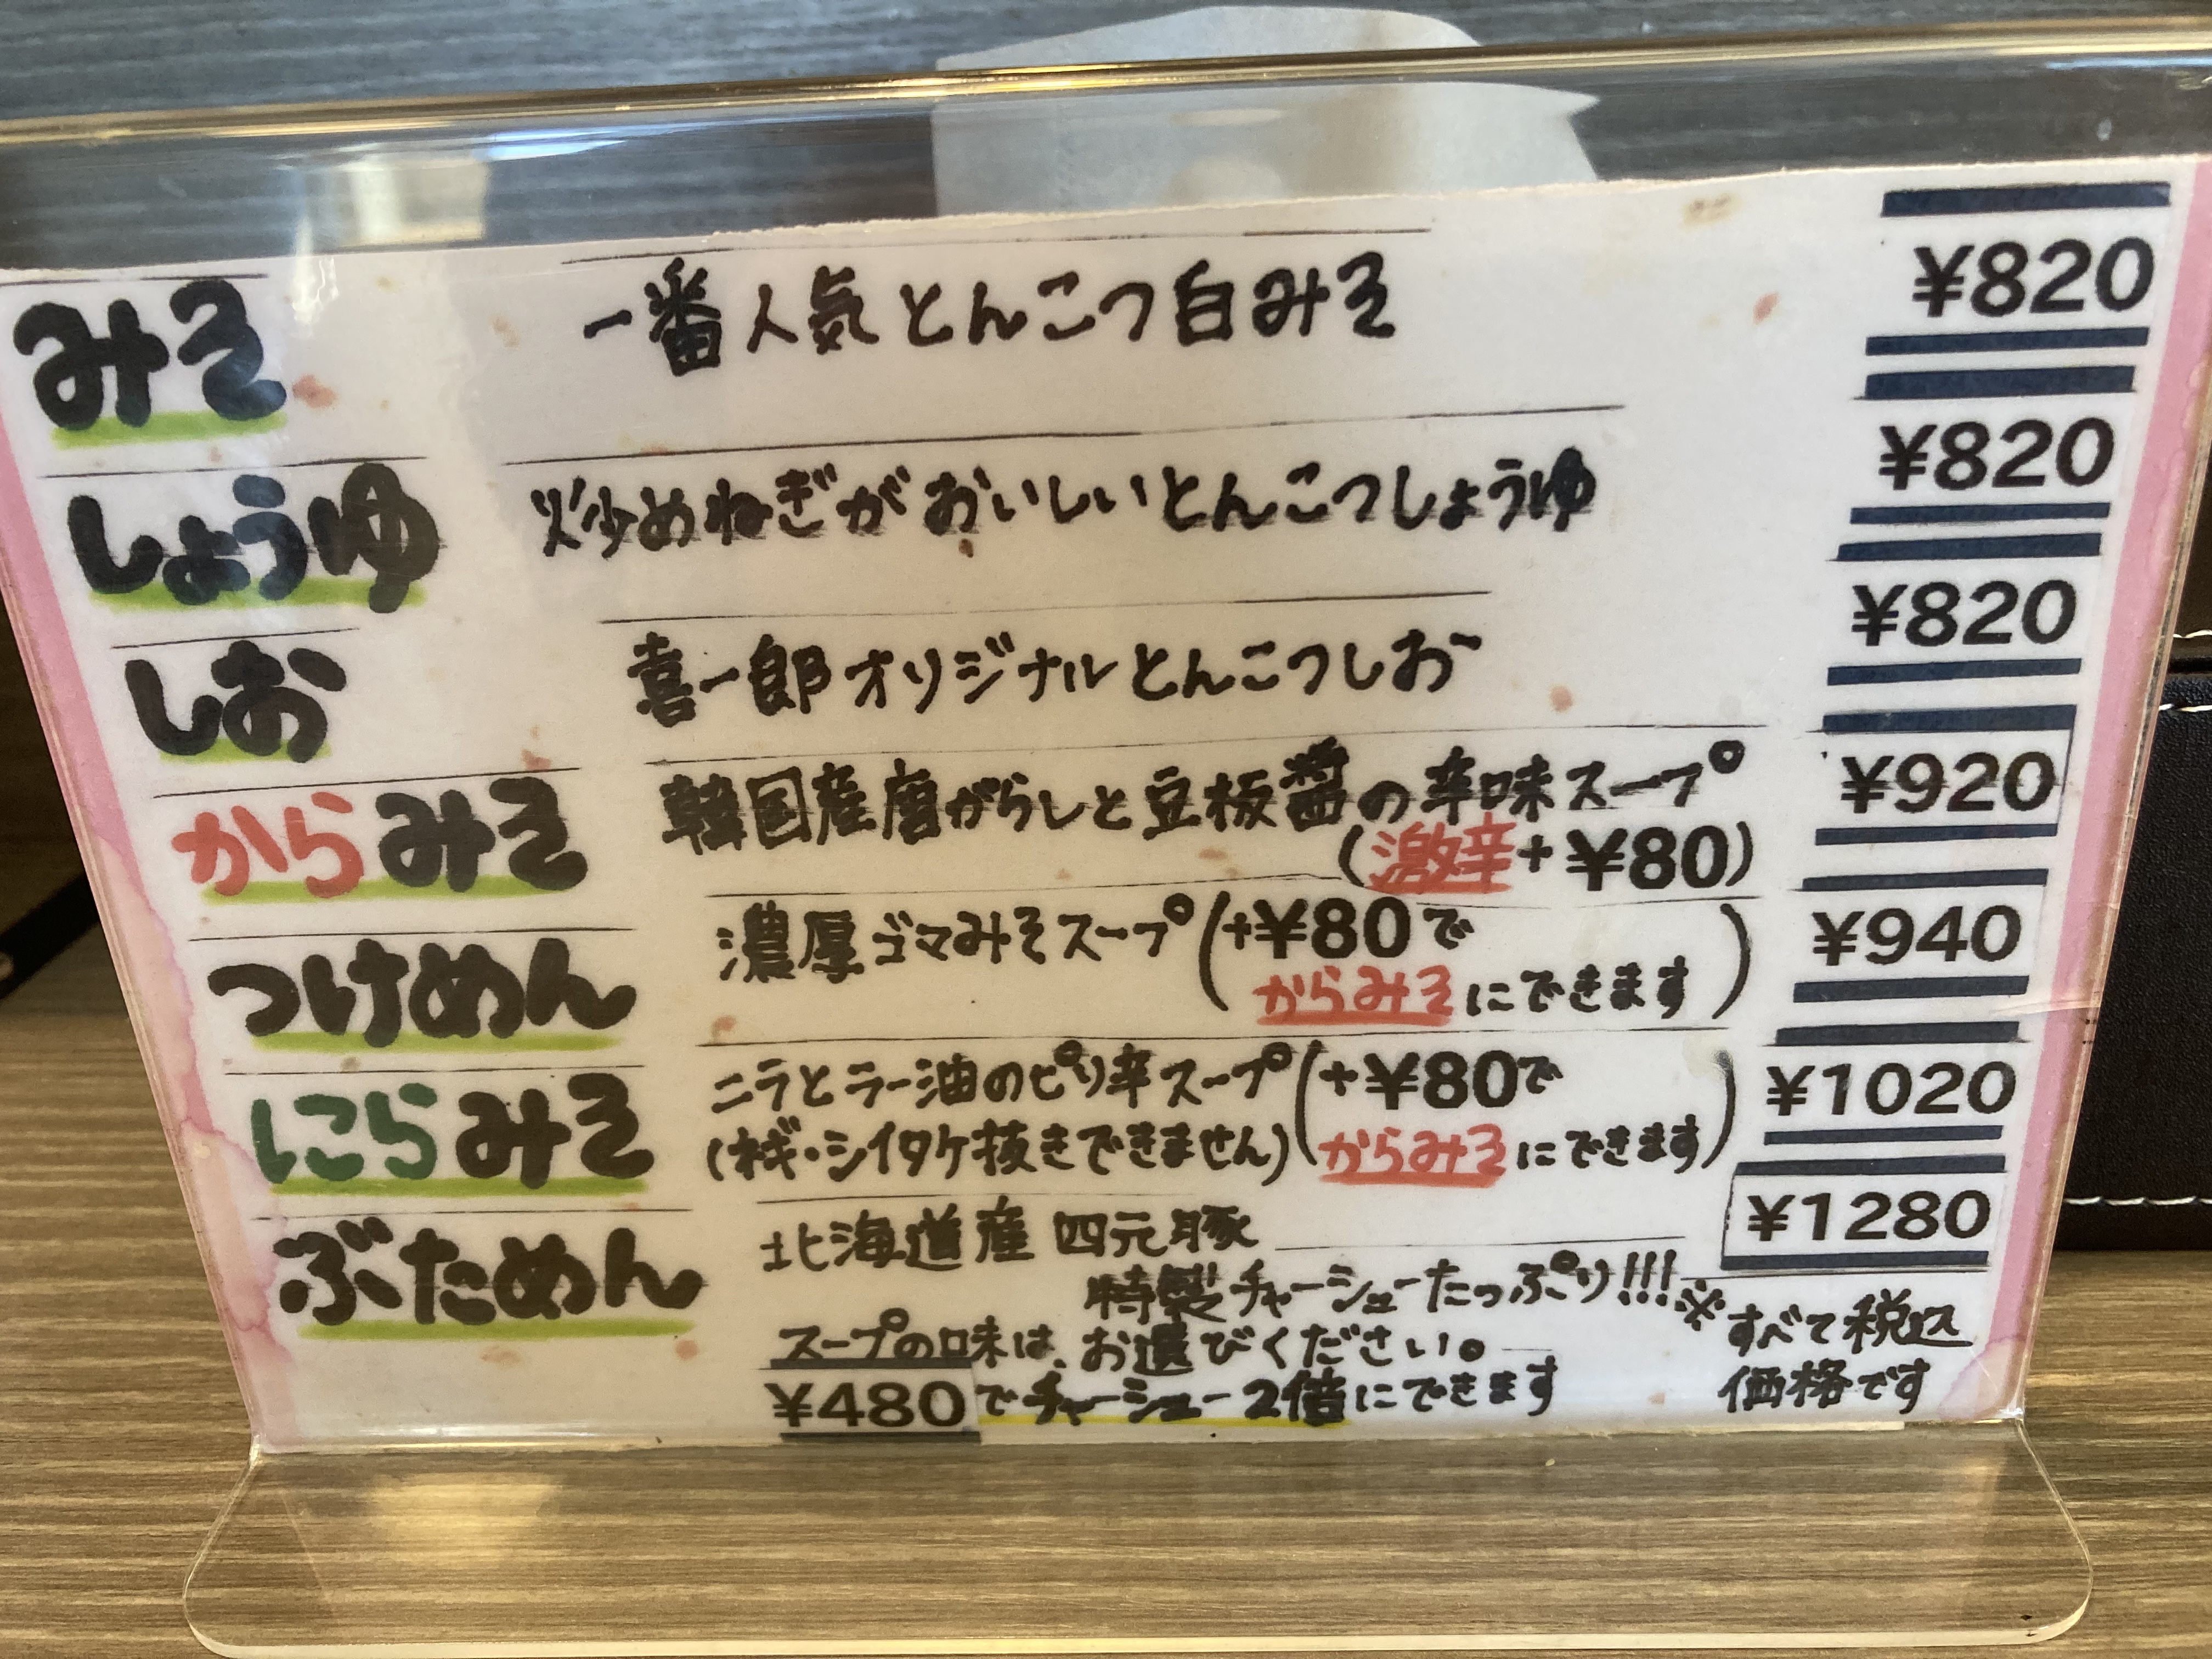 みそ 一番人気とんこつ白みそ ¥820
しょうゆ 炒めねぎがおいしいとんこつしょうゆ ¥820
しお 喜一郎オリジナルとんこつしお ¥820
からみそ 韓国産唐がらしと豆板醤の辛味スープ ¥920
(激辛+¥80)
つけめん 濃厚ゴマみそスープ(+¥80で ¥940
からみそにできます)
にらみそ ニラとラー油のピリ辛スープ(+¥80で ¥1020
(ネギ・シイタケ抜きできません) からみそにできます)
ぶためん 北海道産 四元豚 ¥1280
特製チャーシューたっぷり!!!
スープの味は、お選びください。
¥480でチャーシュー2倍にできます
※すべて税込
価格です